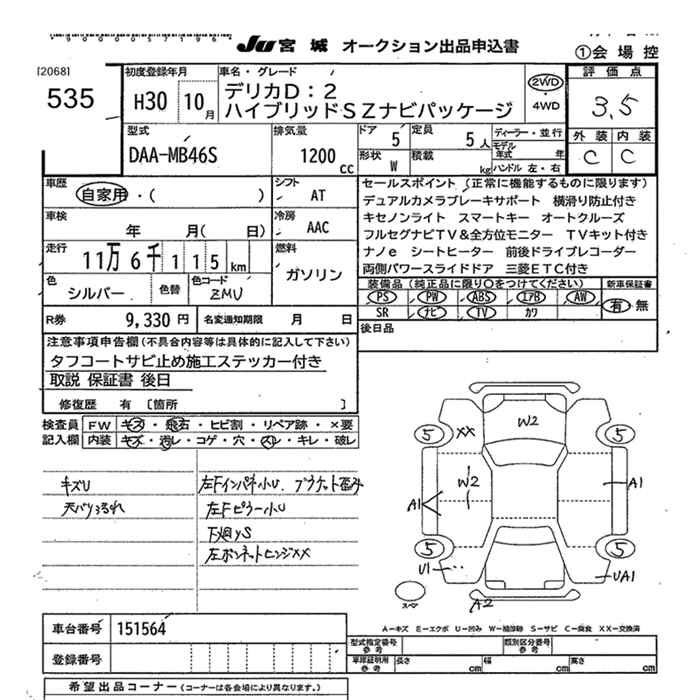 JU 宮城 オークション出品申込書
①会場控
[2068]
535
初度登録年月
H30 10月
車名・グレード
デリカD:2
ハイブリッドSZナビパッケージ
2WD
4WD
評価点
3.5
外装 内装
C C
型式
DAA-MB46S
排気量
1200 cc
ドア
5
定員
5人
形状
W
積載
kg
ディーラー・並行
モデル年式 年
ハンドル 左・右
車歴
自家用・( )
シフト
AT
車検
年 月( 日)
冷房
AAC
走行
11万6千115km
燃料
ガソリン
色
シルバー
色替
色コード
ZMU
R券
9,330円
名変通知期限 月 日
セールスポイント (正常に機能するものに限ります)
デュアルカメラブレーキサポート 横滑り防止付き
キセノンライト スマートキー オートクルーズ
フルセグナビTV&全方位モニター TVキット付き
ナノe シートヒーター 前後ドライブレコーダー
両側パワースライドドア 三菱ETC付き
装備品 (純正品に限り○をつけてください)
PS PW ABS エアB AW
SR ナビ TV カワ
新車保証書
有・無
後日品
注意事項申告欄(不具合内容等は具体的に記入して下さい)
タフコートサビ止め施工ステッカー付き
取説 保証書 後日
修復歴 有 [箇所 ]
検査員記入欄
FW キズ・飛石・ヒビ割・リペア跡・×要
内装 キズ・汚レ・コゲ・穴・スレ・キレ・破レ
キズU
天バリよごれ
左Fインパネ小U、ブラケット歪み
左Fピラー小U
下廻yS
左ボンネットヒンジXX
W2
5 XX 5
W2
A1 A1
5 5
U1 UA1
A2
スペア
A-キズ E-エクボ U-凹み W-補修跡 S-サビ C-腐食 XX-交換済
車台番号 151564
登録番号
型式指定番号 参考
類別区分番号 参考
車庫証明用 参考
長さ cm 幅 cm 高さ cm
希望出品コーナー (コーナーは各会場により異なります。)